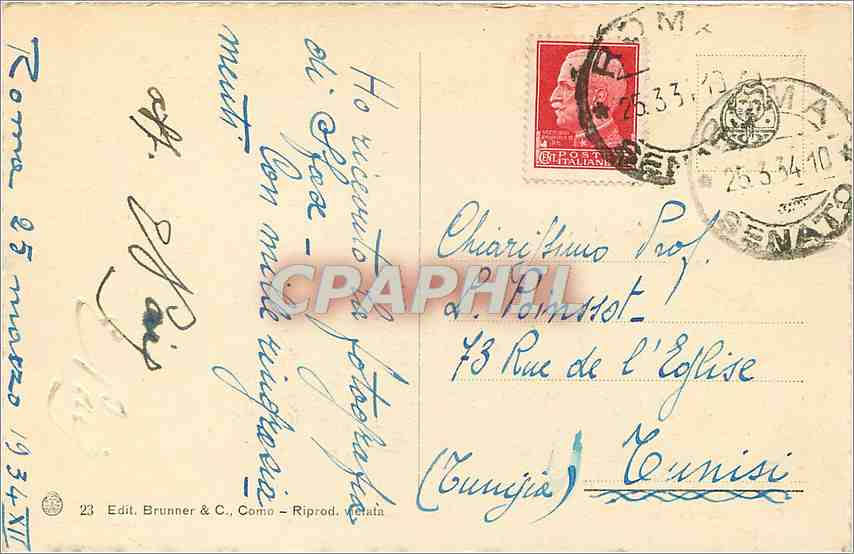 Roma 25 marzo 1934 XII
Ho ricevuto la fotografia
di Sfax –
Con mille ringrazia-
menti
aff. EPais
23 Edit. Brunner & C., Como – Riprod. vietata
POSTE
ITALIANE
ROMA
25.3.34.10
SENATO
ROMA
25.3.34.10
SENATO
Chiarissimo Prof.
L. Poinssot
73 Rue de l'Eglise
Tunisi
(Tunisia)
CPAPHIL